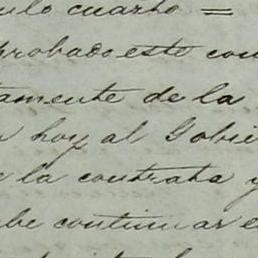 ulo cuarto =
probado este con
tamente de la
hoy al Gobie
la contrata y
be continuar e